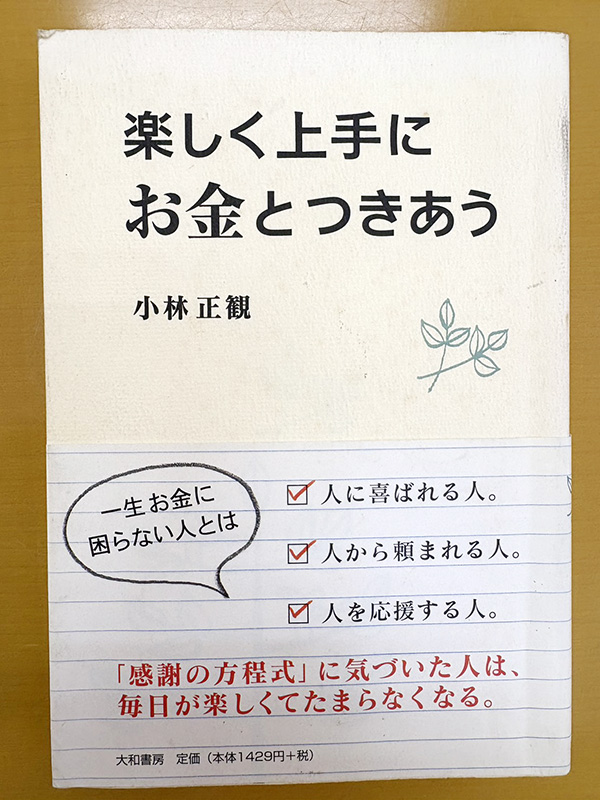 楽しく上手に
お金とつきあう
小林正観
一生お金に
困らない人とは
人に喜ばれる人。
人から頼まれる人。
人を応援する人。
「感謝の方程式」に気づいた人は、
毎日が楽しくてたまらなくなる。
大和書房 定価（本体1429円+税）